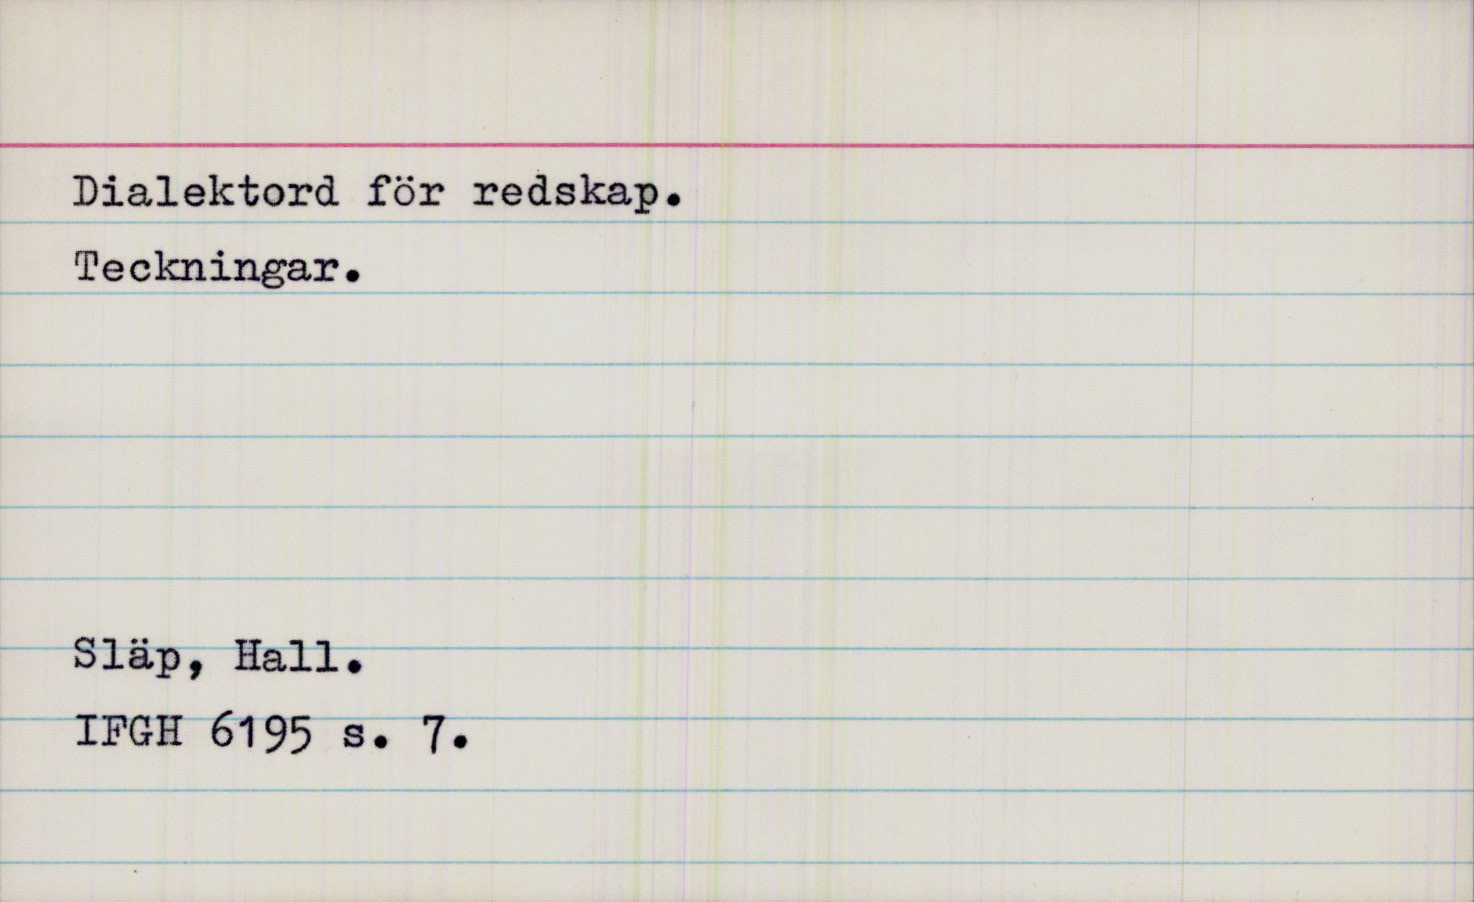 Dialektord för redskap.
Teckningar.
Släp, Hall.
IFGH 6195 s. 7.